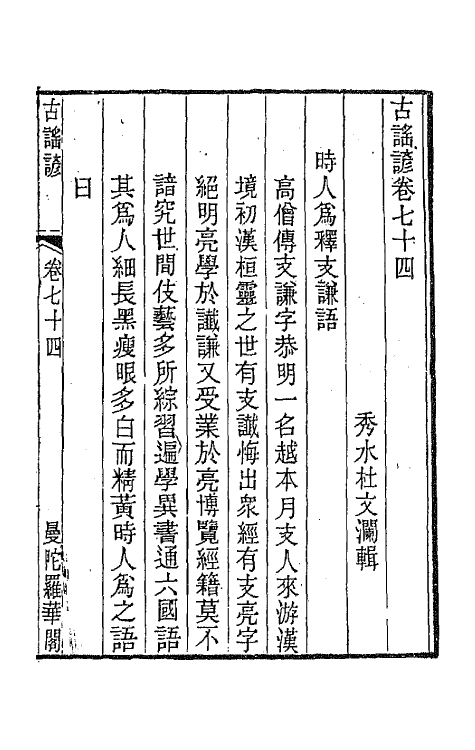 古謠諺卷七十四
秀水杜文瀾輯
時人爲釋支謙語
高僧傳支謙字恭明一名越本月支人來游漢
境初漢桓靈之世有支讖悔出衆經有支亮字
絕明亮學於讖謙又受業於亮博覽經籍莫不
諳究世間伎藝多所綜習遍學異書通六國語
其爲人細長黑瘦眼多白而精黃時人爲之語
曰
古謠諺
卷七十四
曼陀羅華閣